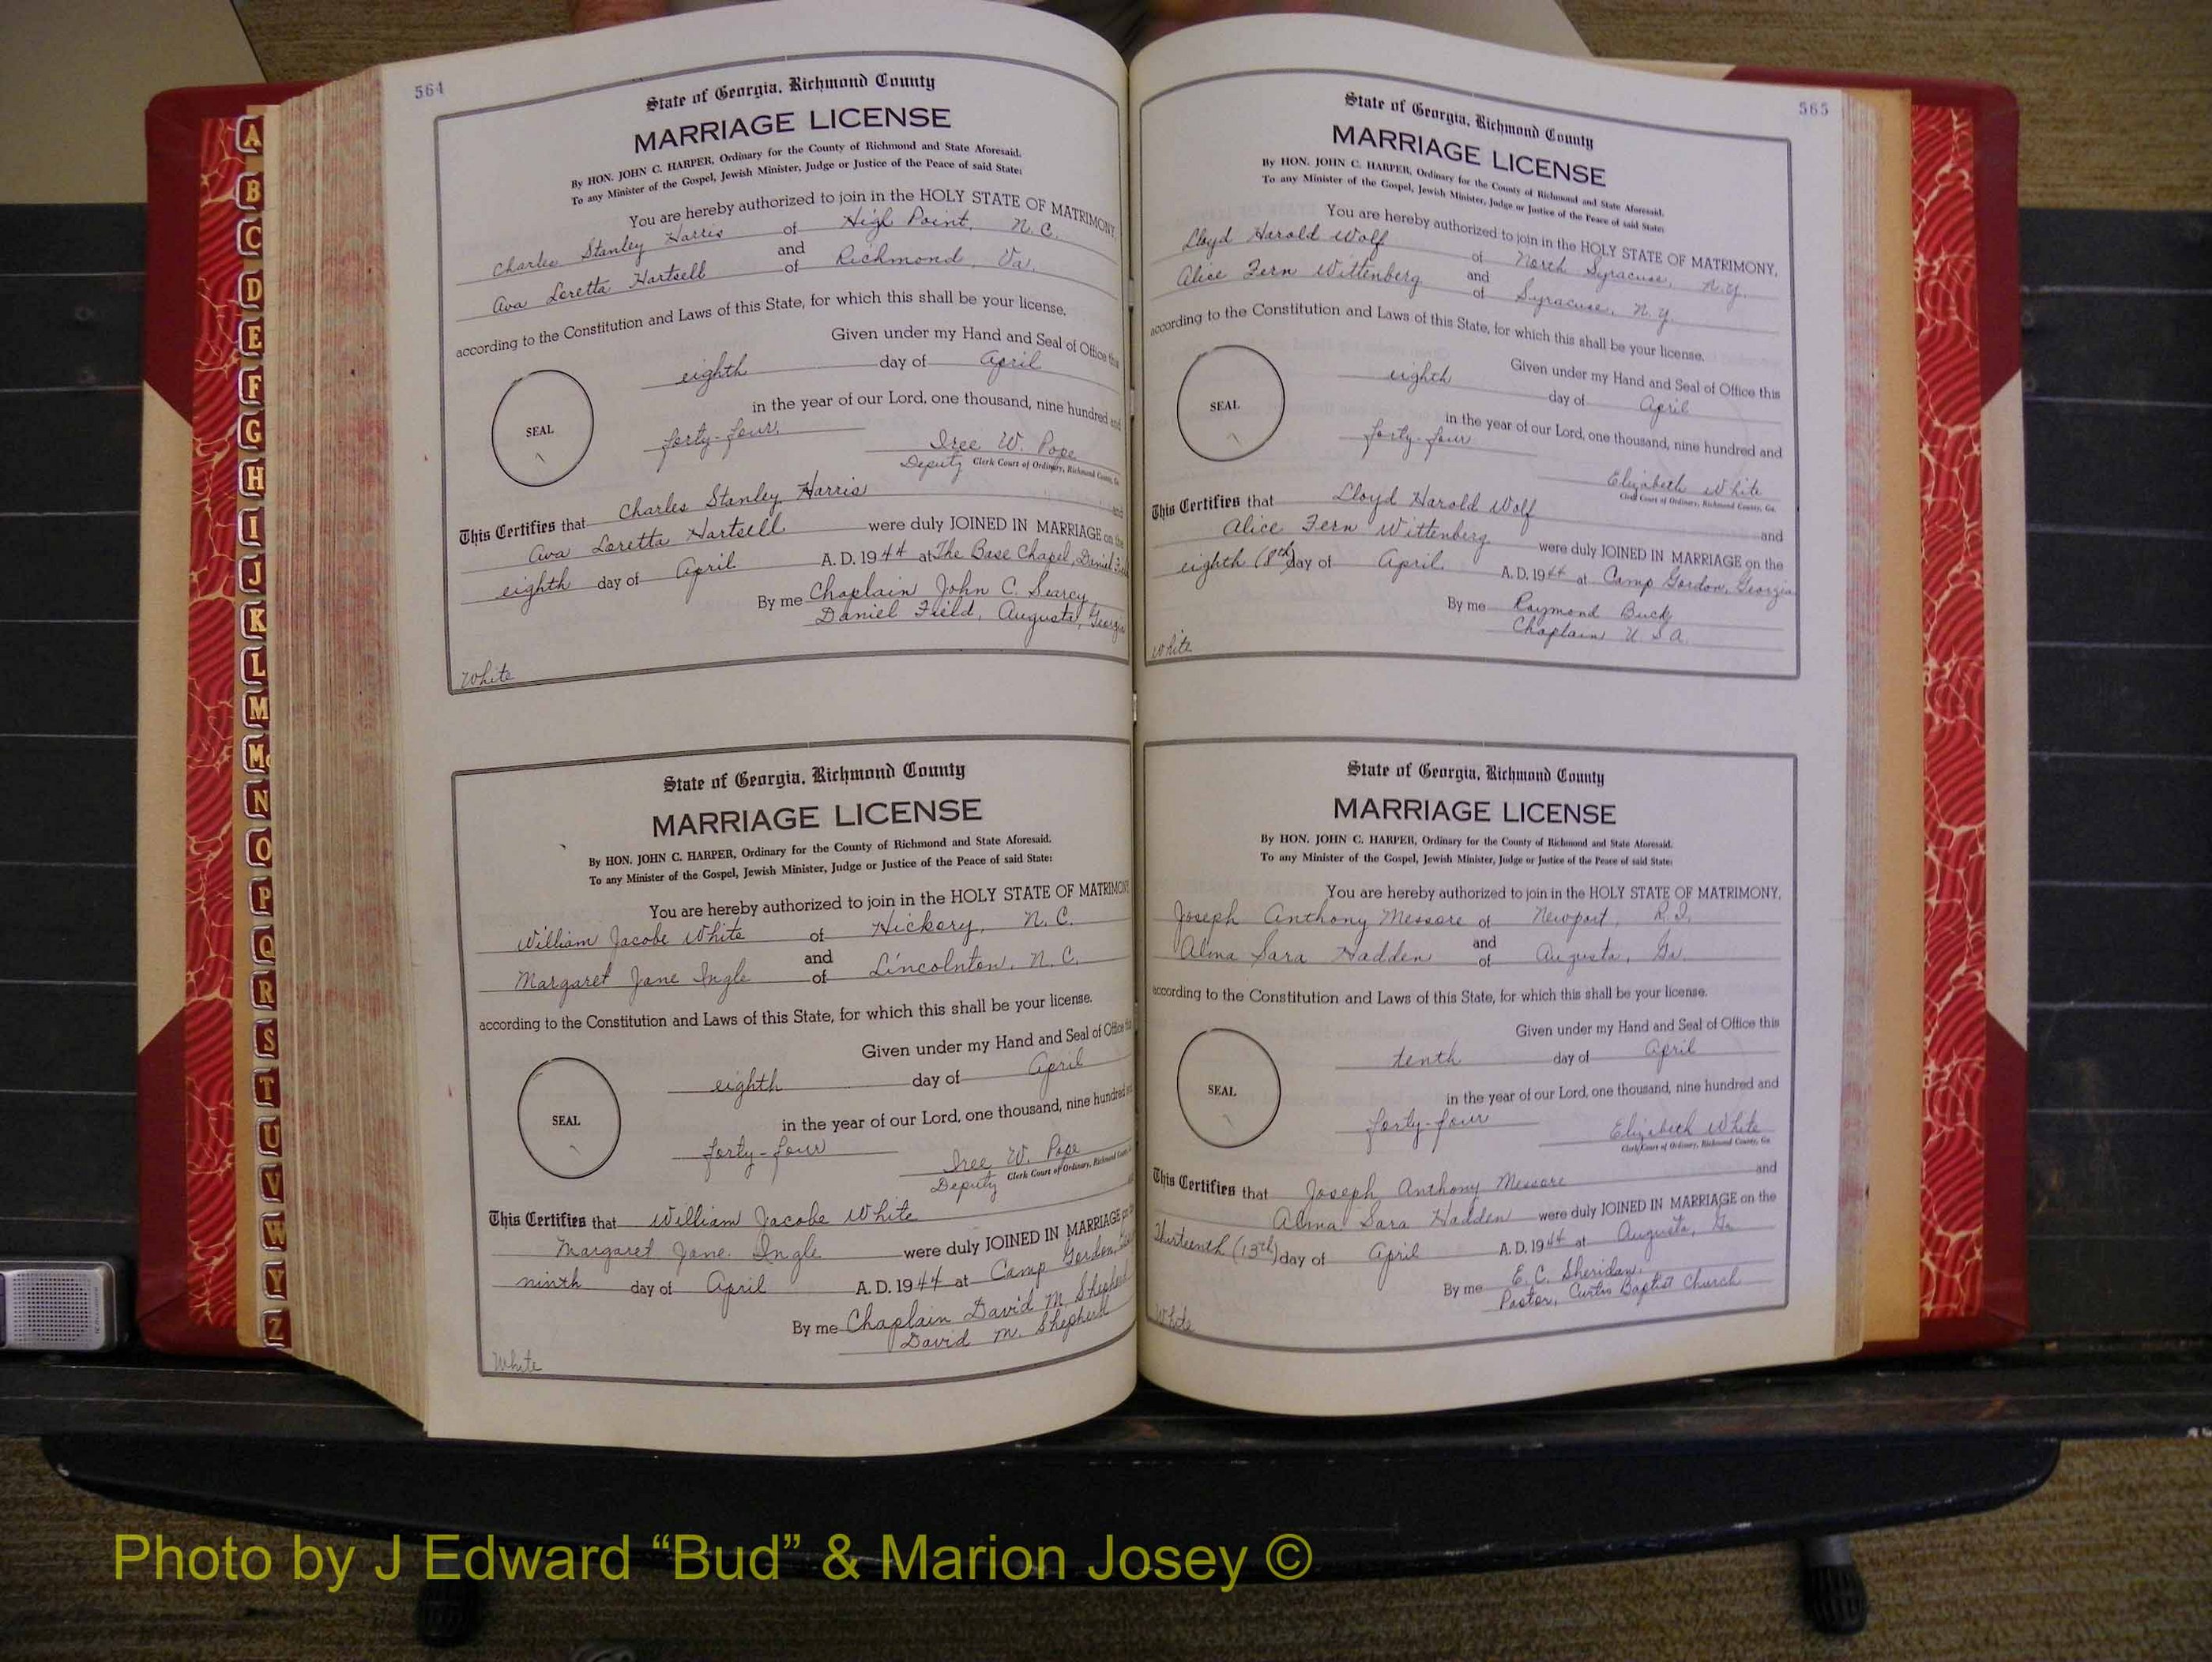 564
State of Georgia, Richmond County
MARRIAGE LICENSE
By HON. JOHN C. HARPER, Ordinary for the County of Richmond and State Aforesaid.
To any Minister of the Gospel, Jewish Minister, Judge or Justice of the Peace of said State:
You are hereby authorized to join in the HOLY STATE OF MATRIMONY,
Charles Stanley Harris of High Point, N.C.
and
Ava Loretta Hartsell of Richmond, Va.
according to the Constitution and Laws of this State, for which this shall be your license.
Given under my Hand and Seal of Office this
eighth day of April
in the year of our Lord, one thousand, nine hundred and
SEAL
forty-four.
Iree W. Pope
Deputy Clerk Court of Ordinary, Richmond County, Ga
This Certifies that Charles Stanley Harris and
Ava Loretta Hartsell were duly JOINED IN MARRIAGE on the
eighth day of April A.D. 1944 at The Base Chapel, Daniel
By me Chaplain John C. Searcy
Daniel Field, Augusta, Georgia
White
State of Georgia, Richmond County
MARRIAGE LICENSE
By HON. JOHN C. HARPER, Ordinary for the County of Richmond and State Aforesaid.
To any Minister of the Gospel, Jewish Minister, Judge or Justice of the Peace of said State:
You are hereby authorized to join in the HOLY STATE OF MATRIMONY
William Jacobe White of Hickory, N.C.
and
Margaret Jane Ingle of Lincolnton, N.C.
according to the Constitution and Laws of this State, for which this shall be your license.
Given under my Hand and Seal of Office
eighth day of April
in the year of our Lord, one thousand, nine hundred
SEAL
forty-four
Iree W. Pope
Deputy Clerk Court of Ordinary, Richmond
This Certifies that William Jacobe White
Margaret Jane Ingle were duly JOINED IN MARRIAGE
ninth day of April A.D. 1944 at Camp Gordon,
By me Chaplain David M. Shepherd
David M. Shepherd
White
565
State of Georgia, Richmond County
MARRIAGE LICENSE
By HON. JOHN C. HARPER, Ordinary for the County of Richmond and State Aforesaid.
To any Minister of the Gospel, Jewish Minister, Judge or Justice of the Peace of said State:
You are hereby authorized to join in the HOLY STATE OF MATRIMONY,
Lloyd Harold Wolf of North Syracuse, N.Y.
and
Alice Fern Wittenberg of Syracuse, N.Y.
according to the Constitution and Laws of this State, for which this shall be your license.
Given under my Hand and Seal of Office this
eighth day of April
in the year of our Lord, one thousand, nine hundred and
SEAL
forty-four
Elizabeth White
Clerk Court of Ordinary, Richmond County, Ga.
This Certifies that Lloyd Harold Wolf and
Alice Fern Wittenberg were duly JOINED IN MARRIAGE on the
eighth (8th) day of April A.D. 1944 at Camp Gordon, Georgia
By me Raymond Buck
Chaplain U.S.A.
White
State of Georgia, Richmond County
MARRIAGE LICENSE
By HON. JOHN C. HARPER, Ordinary for the County of Richmond and State Aforesaid.
To any Minister of the Gospel, Jewish Minister, Judge or Justice of the Peace of said State:
You are hereby authorized to join in the HOLY STATE OF MATRIMONY,
Joseph Anthony Messore of Newport, R.I.
and
Alma Sara Hadden of Augusta, Ga.
according to the Constitution and Laws of this State, for which this shall be your license.
Given under my Hand and Seal of Office this
tenth day of April
in the year of our Lord, one thousand, nine hundred and
SEAL
forty-four
Elizabeth White
Clerk Court of Ordinary, Richmond County, Ga
This Certifies that Joseph Anthony Messore and
Alma Sara Hadden were duly JOINED IN MARRIAGE on the
Thirteenth (13th) day of April A.D. 1944 at Augusta, Ga
By me E. C. Sheridan,
Pastor, Curtis Baptist Church
White
A
B
C
D
E
F
G
H
I
J
K
L
M
Mc
N
O
P
Q
R
S
T
U
V
W
Y
Z
Photo by J Edward “Bud” & Marion Josey ©